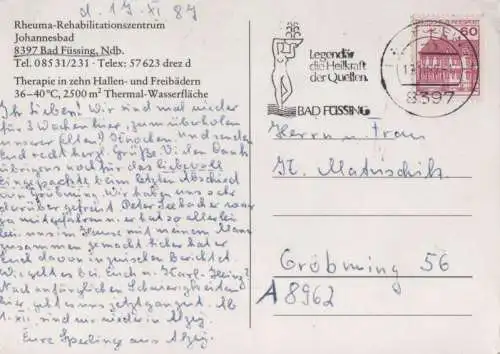 d. 17. XI 87
Rheuma-Rehabilitationszentrum
Johannesbad
8397 Bad Füssing, Ndb.
Tel. 08531/231 · Telex: 57623 drez d
Therapie in zehn Hallen- und Freibädern
36–40°C, 2500 m² Thermal-Wasserfläche
Ihr Lieben! Wir sind mal wieder
für 3 Wochen hier, zum überholen
unserer alten Knochen und senden
Euch recht herzl. Grüße Vielen Dank
übrigens noch für das liebevoll
Eingepackte beim letzten Abschied
von Gröbming. Wir haben uns sehr
darüber gefreut Peter war
zu mitgefahren. er hat so allerlei
bei uns im Hause mit meinem Mann
zusammen gemacht sicher hat er
Euch davon inzwischen Berichtet.
Wie geht es bei Euch u. Karl-Heinz?
Nach anfänglichen Schwierigkeiten
hier, geht uns jetzt ganz gut. Ab
1. XII. sind wir wieder in Alzey.
Eure aus Alzey.
Legendär
die Heilkraft
der Quellen.
BAD FÜSSING
8397
60
Herrn u. Frau
K. Matuschik
Gröbming 56
A 8962